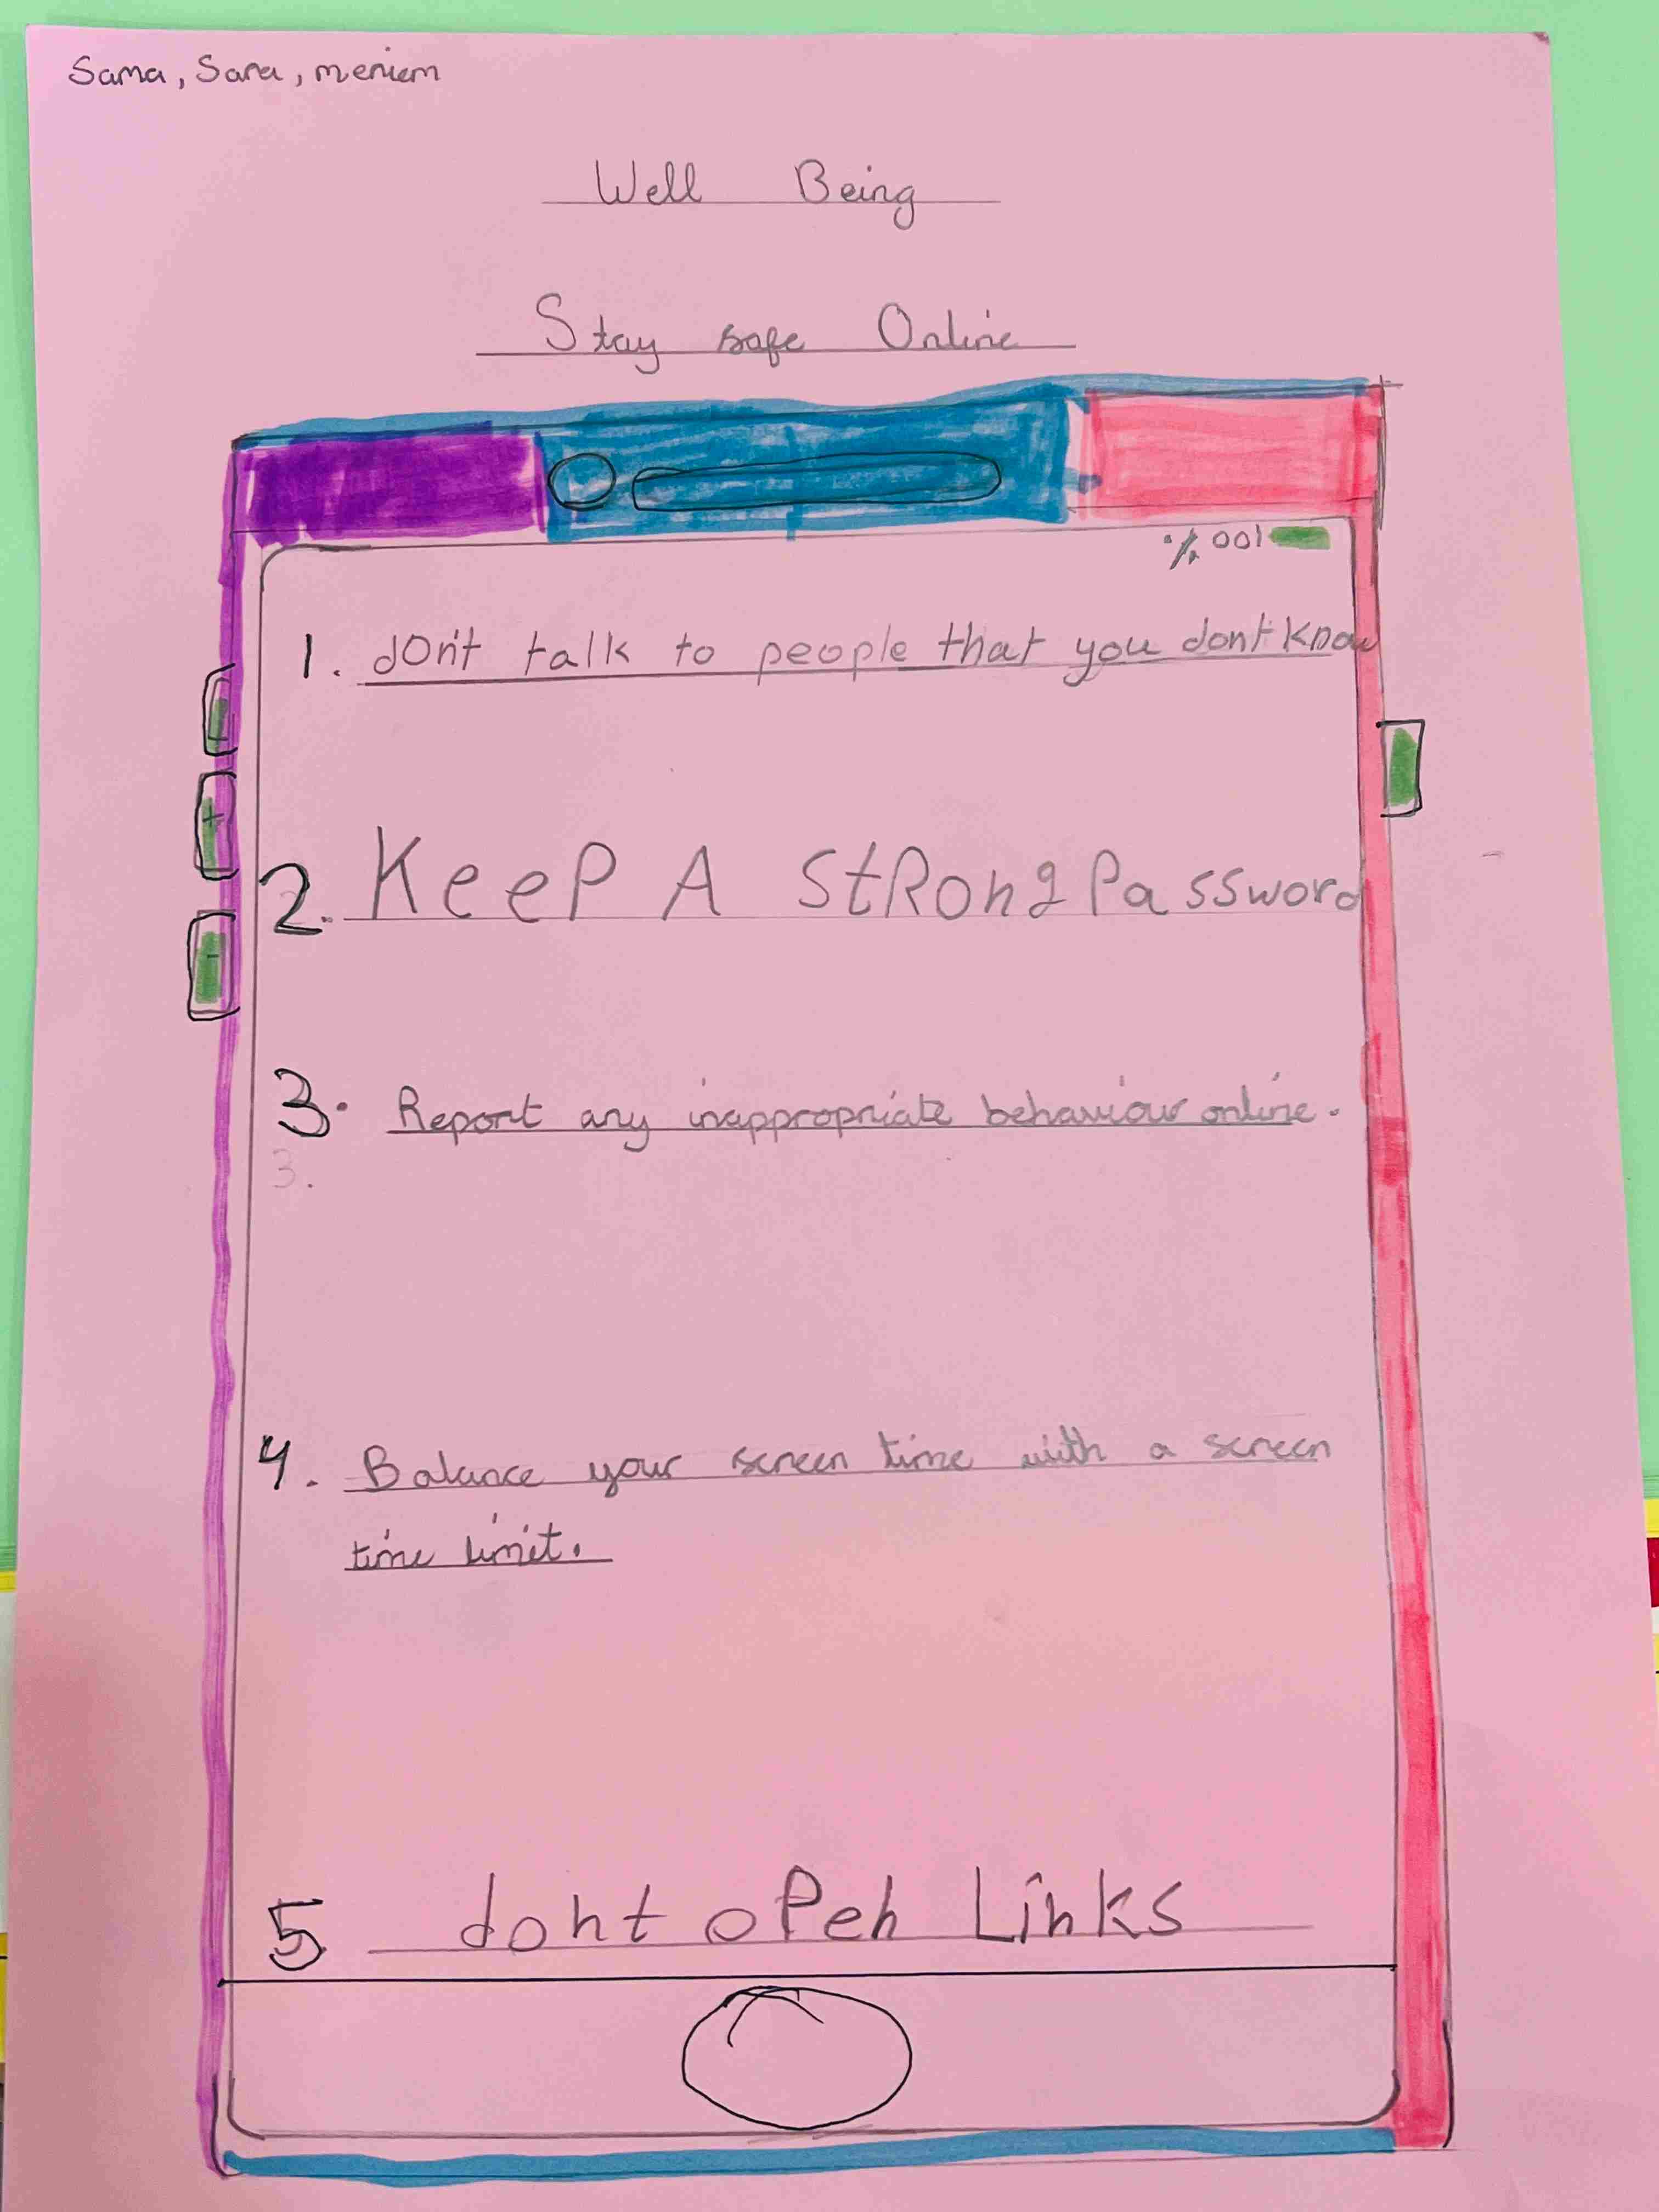 Sama, Sara, meriem
Well Being
Stay safe Online
% 001
1. don't talk to people that you dont know
2. KeeP A StRong Password
3. Report any inappropriate behaviour online.
3.
4. Balance your screen time with a screen
time limit.
5 dont oPen Links